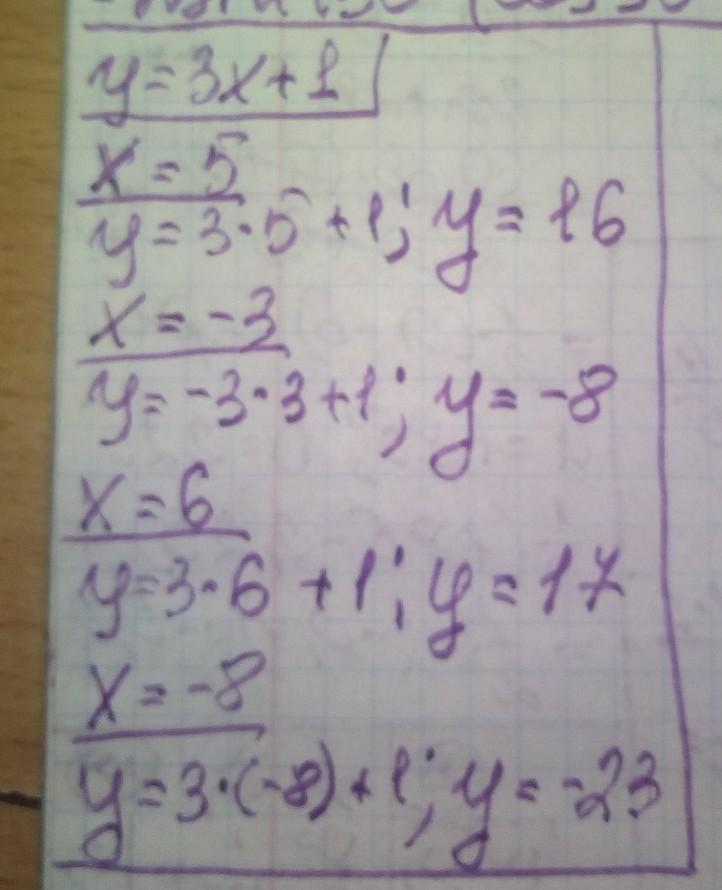 y=3x+1
x=5
y=3·5+1; y=16
x=-3
y=-3·3+1; y=-8
x=6
y=3·6+1; y=17
x=-8
y=3·(-8)+1; y=-23